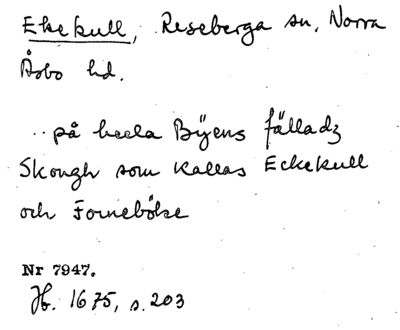 Ekekull, Reseberga sn, Norra
Åsbo hd.
.. på heela Bÿens fälladz
Skough som Kallas Eckekull
och Fornebökse
Nr 7947.
Jb. 1675, s. 203